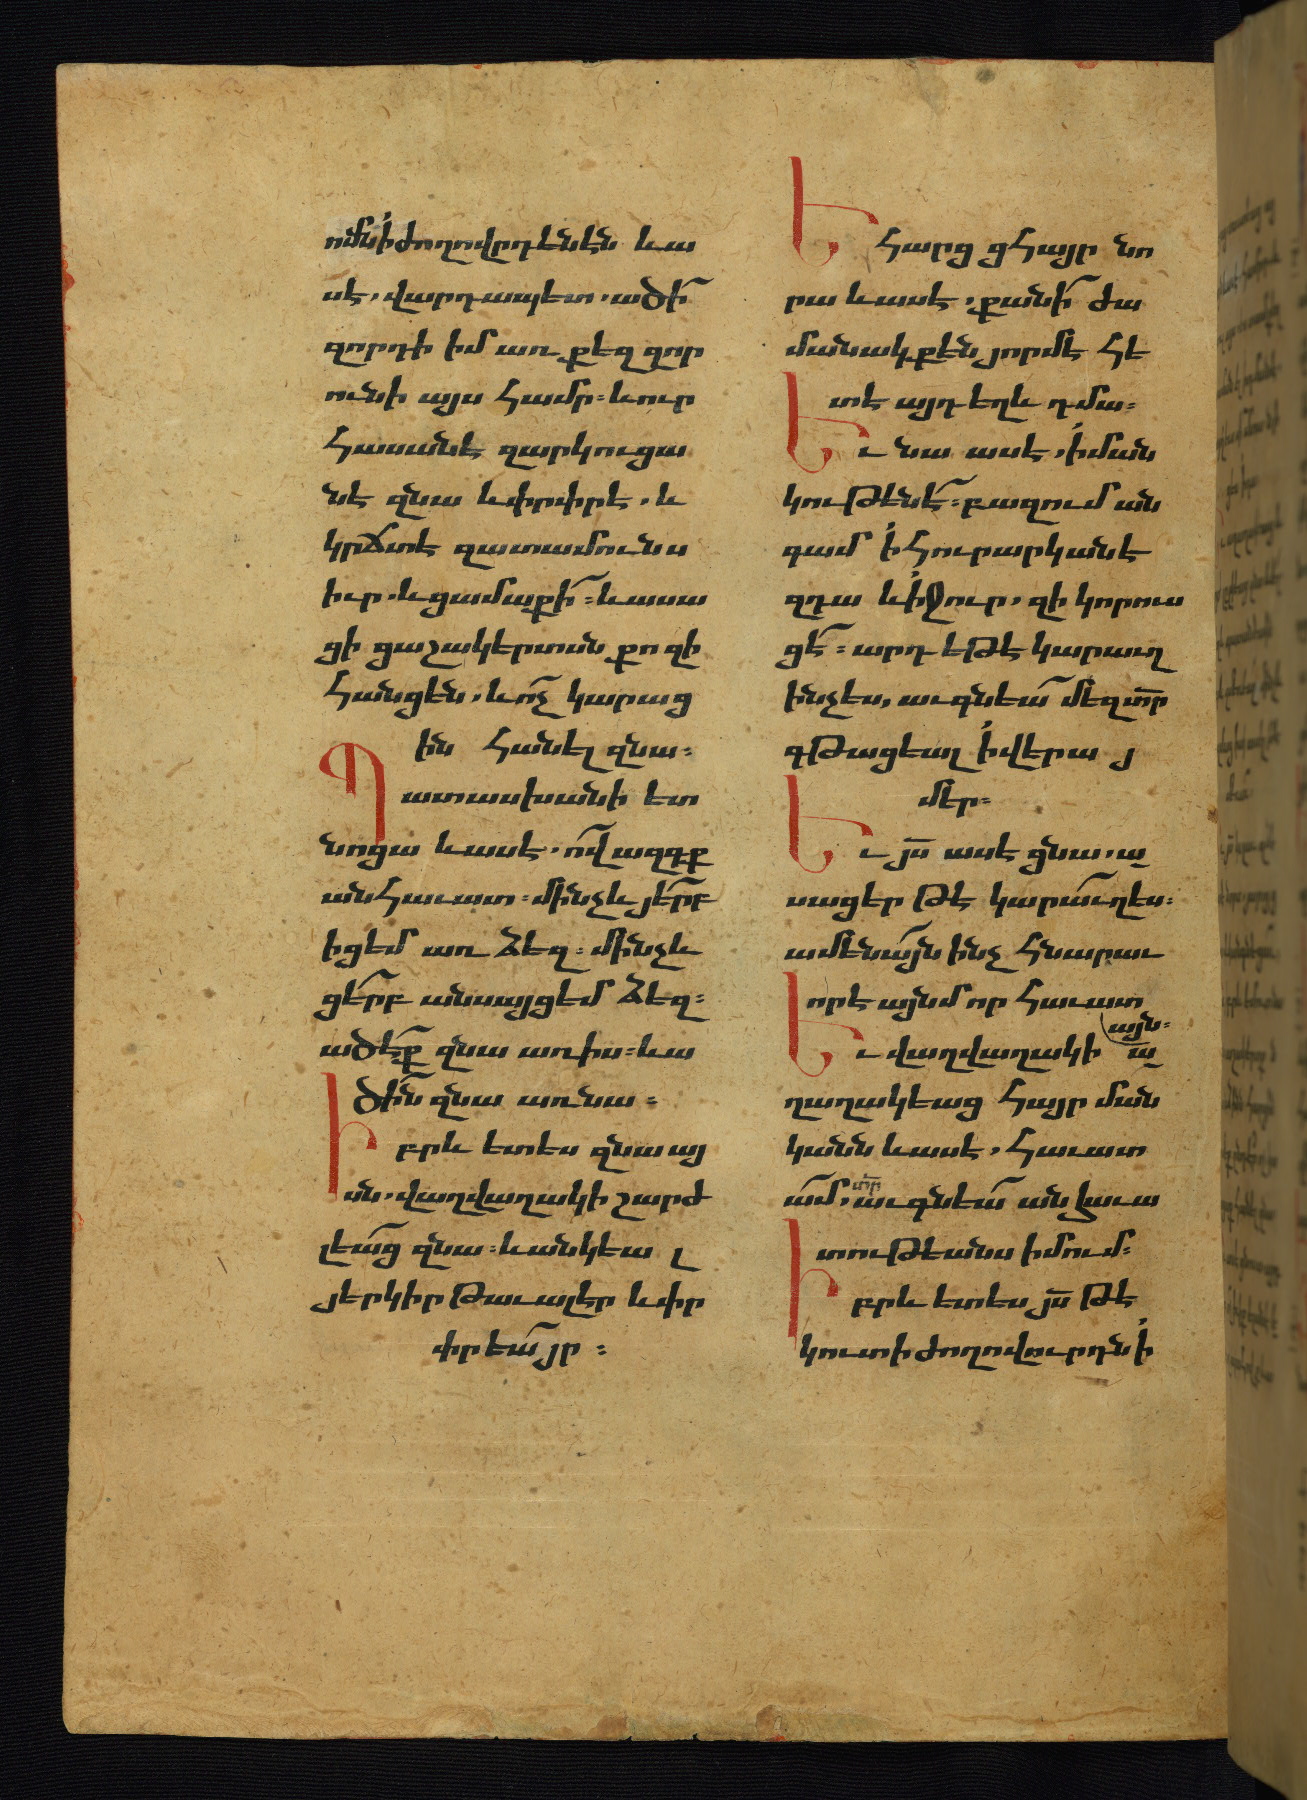 ոմն ի ժողովրդենէն և ա
սէ․ վարդապետ․ ածի
զորդի իմ առ քեզ զոր
ունի այս համր։ և ուր
հասանէ զարկուցա
նէ զնա և փրփրէ․ և
կրճտէ զատամունս
իւր․ և ցամաքի։ և ասա
ցի ցաշակերտսն քո զի
հանցեն․ և ոչ կարաց
ին հանել զնա։
Պատասխանի ետ
նոցա և ասէ․ ով ազգք
անհաւատ։ մինչև յերբ
իցեմ առ ձեզ։ մինչև
ցերբ անսայցեմ ձեզ։
ածէք զնա առ իս։ և ա
ծին զնա առ նա։
Իբրև ետես զնա այ
սն․ վաղվաղակի շարժ
լեաց զնա։ և անկեալ
յերկիր թաւալէր և փր
փրեայր։
Եհարց ցհայր նո
րա և ասէ․ քանի ժա
մանակ քեն յորմէ հե
տէ այդ եղև դմա։
Եւ նա ասէ․ ի ման
կութենէ։ բազում ան
գամ ի հուր արկանէ
զդա և ի ջուր․ զի կորուս
ցէ։ արդ եթէ կարաւղ
ինչ ես, աւգնեա մեզ տր
գթացեալ ի վերայ
մեր։
Եւ յս ասէ ցնա․ ա
սացեր թէ կարաւղ ես։
ամենայն ինչ հնարաւ
որ է այնմ որ հաւատ
այն։
Եւ վաղվաղակի աղ
աղակեաց հայր ման
կանն և ասէ․ հաւատ
տր
ամ․ աւգնեա անհաւա
տութեանս իմում։
Իբրև ետես յս թէ
կուտի ժողովուրդն ի